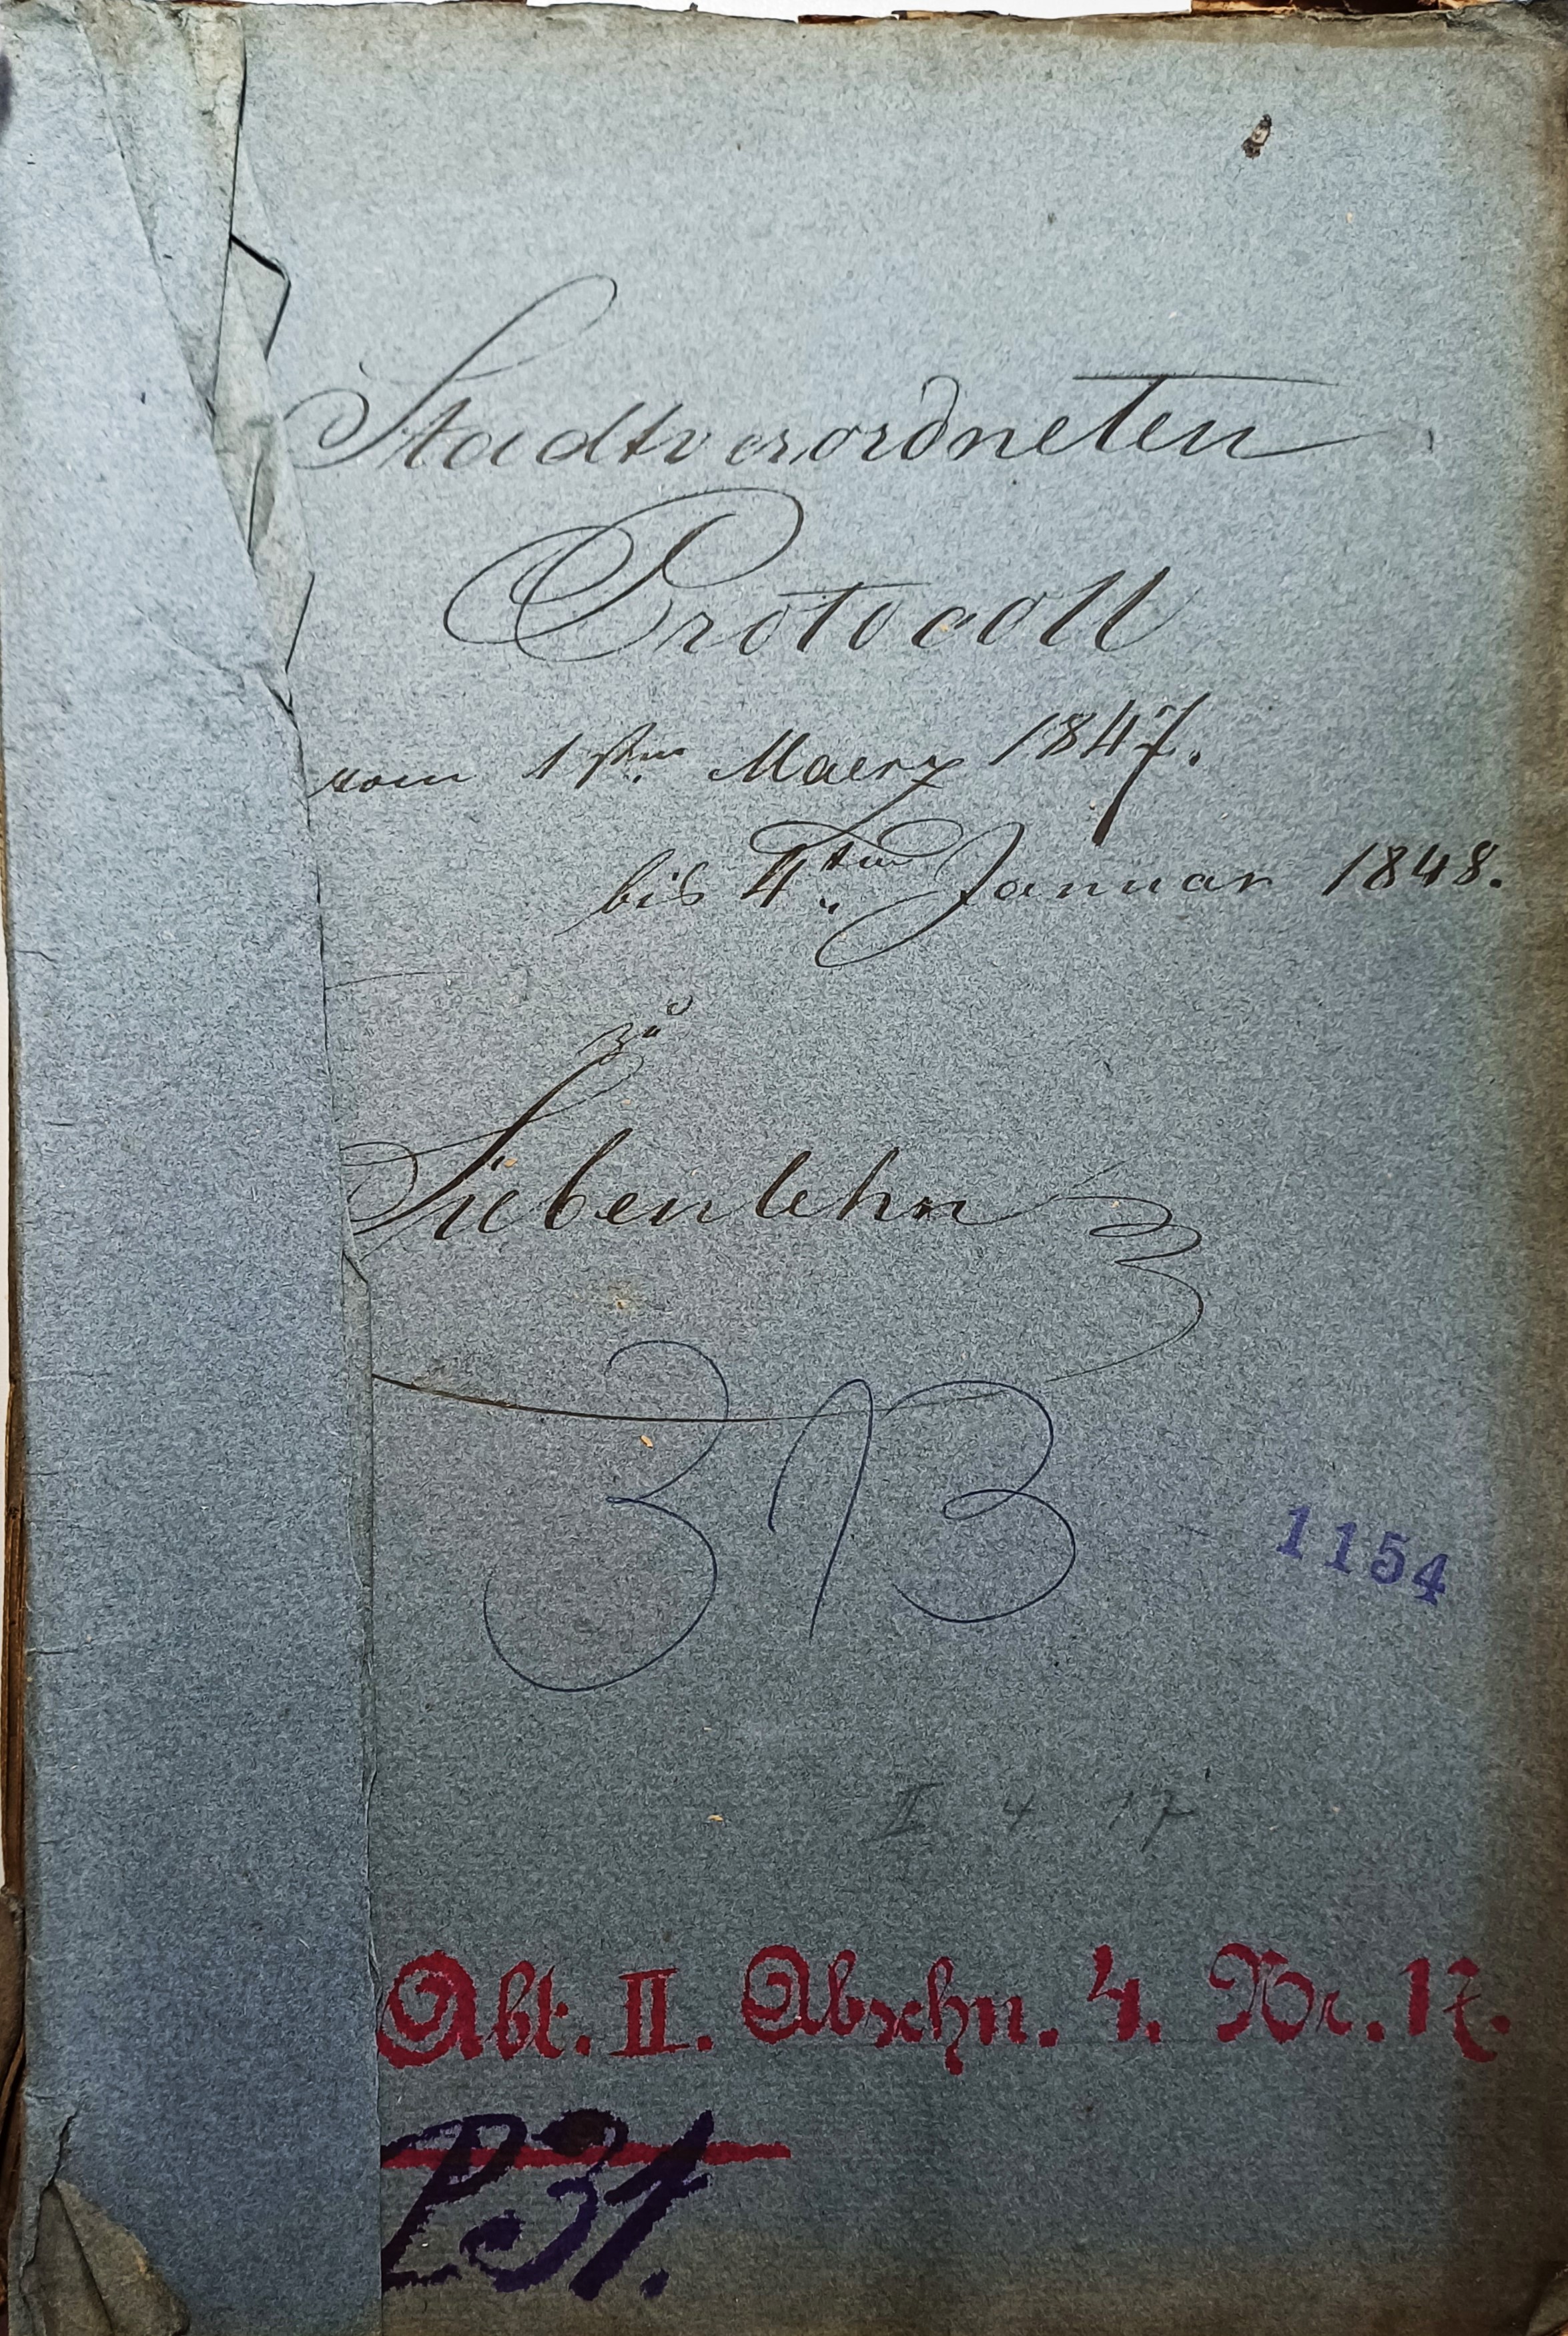 Stadtverordneten
Protocoll
vom 1sten Maerz 1847.
bis 4ten Januar 1848.
zu
Siebenlehn
313
1154
II 4 17
Abt. II. Abschn. 4. Nr. 17.
P31.